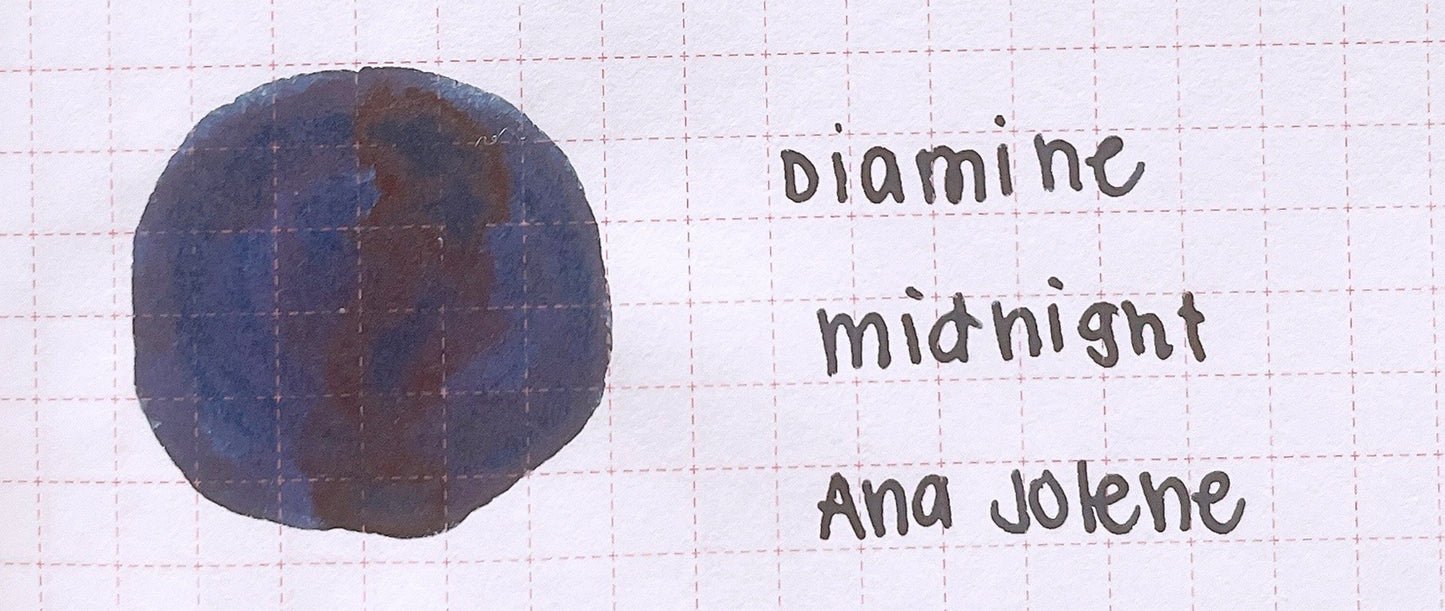 Diamine
midnight
Ana Jolene